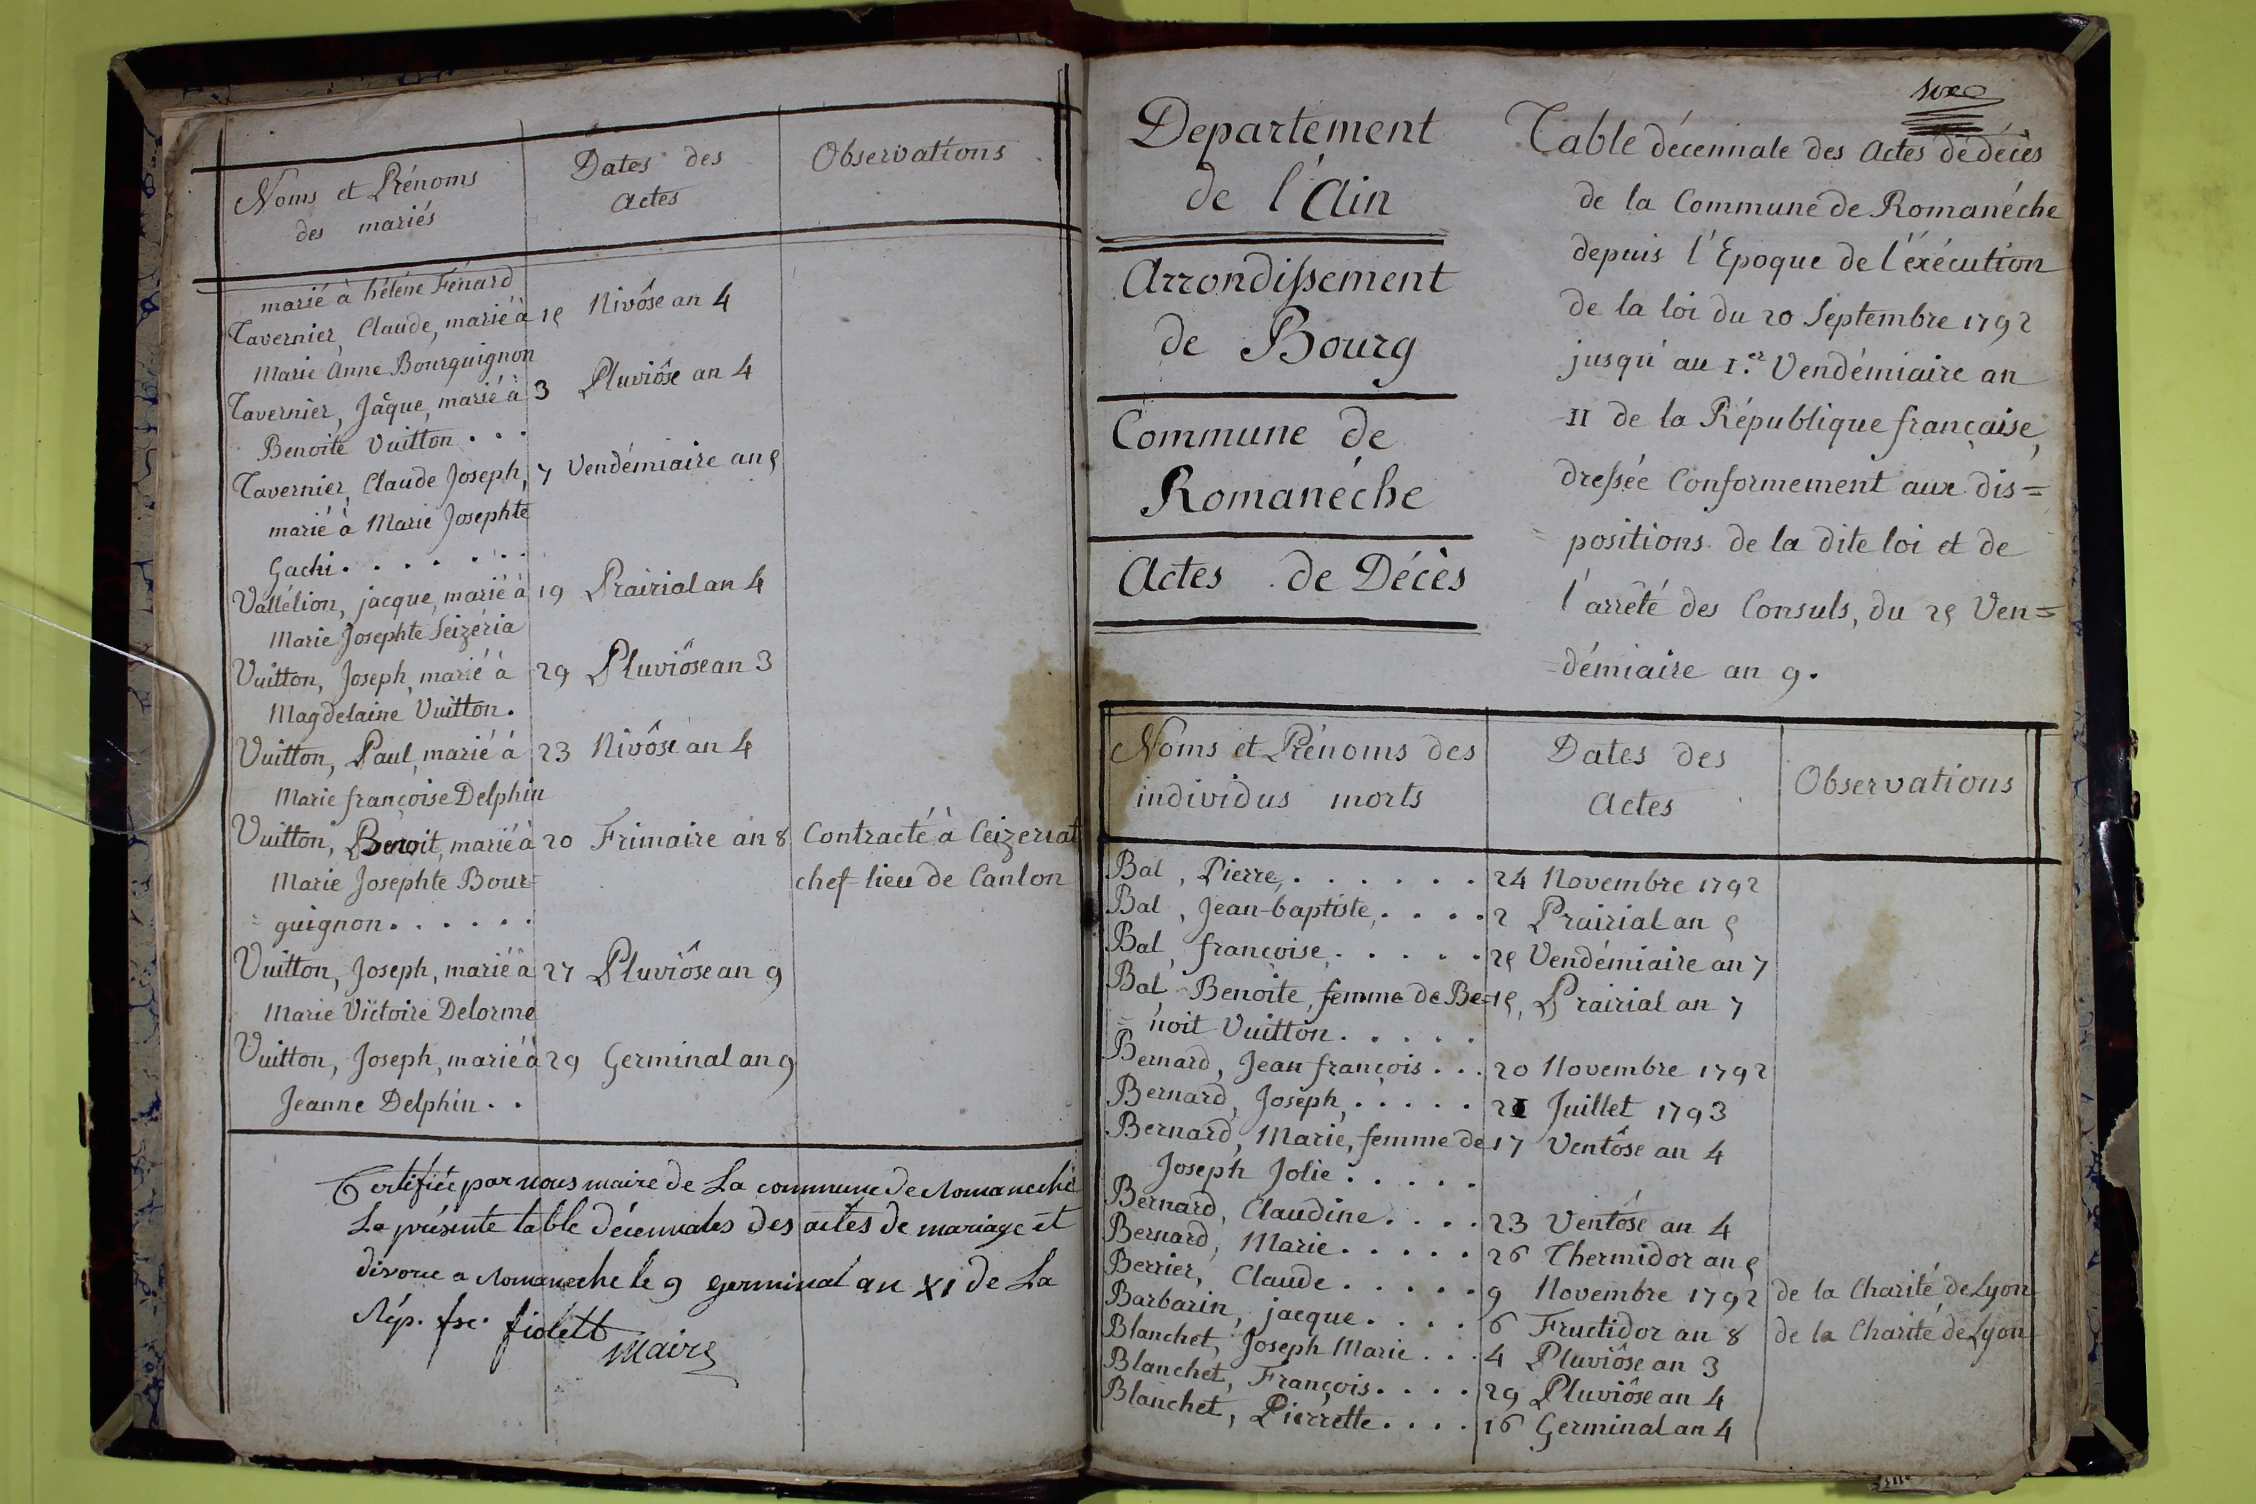 Noms et Prénoms
des mariés
Dates des
Actes
Observations
marié à hélène Fénard
Tavernier, Claude, marié à 15 Nivôse an 4
Marie Anne Bourguignon
Tavernier, Jâque, marié à 3 Pluviôse an 4
Benoite Vuitton . . .
Tavernier, Claude Joseph, 7 Vendémiaire an 5
marié à Marie Josephte
Gachi . . . . . .
Vallélion, jacque, marié à 19 Prairial an 4
Marie Josephte Seizéria
Vuitton, Joseph, marié à 29 Pluviôse an 3
Magdelaine Vuitton.
Vuitton, Paul, marié à 23 Nivôse an 4
Marie françoise Delphin
Vuitton, Benoit, marié à 20 Frimaire an 8 Contracté à Ceizeriat
Marie Josephte Bour= chef-lieu de Canton
=guignon . . . . . .
Vuitton, Joseph, marié à 27 Pluviôse an 9
Marie Victoire Delorme
Vuitton, Joseph, marié à 29 Germinal an 9
Jeanne Delphin . .
Certifiée par nous maire de La commune de Romaneche
La présente table décennales des actes de mariage et
divorce a Romaneche le 9 germinal an XI de La
Rép. fse.
Maire
Departement
de l'Ain
Arrondissement
de Bourg
Commune de
Romanéche
Actes de Décès
Table décennale des Actes de décès
de la Commune de Romanéche
depuis l'Epoque de l'éxécution
de la loi du 20 Septembre 1792
jusqu'au 1.er Vendémiaire an
11 de la République française,
dressée Conformement aux dis=
=positions de la dite loi et de
l'arrêté des Consuls, du 25 Ven=
=démiaire an 9.
Noms et Prénoms des
individus morts
Dates des
Actes
Observations
Bal, Pierre, . . . . . . 24 Novembre 1792
Bal, Jean-baptiste, . . . . 2 Prairial an 5
Bal, françoise . . . . . 25 Vendémiaire an 7
Bal, Benoîte, femme de Be= 15, Prairial an 7
=noit Vuitton . . . . .
Bernard, Jean françois . . . 20 Novembre 1792
Bernard, Joseph, . . . . . 21 Juillet 1793
Bernard, Marie, femme de 17 Ventôse an 4
Joseph Jolie . . . . .
Bernard, Claudine . . . . 23 Ventôse an 4
Bernard, Marie . . . . . 26 Thermidor an 5
Berrier, Claude . . . . . 9 Novembre 1792 de la Charité de Lyon
Barbarin, jacque . . . . 6 Fructidor an 8 de la Charité de Lyon
Blanchet, Joseph Marie . . . 4 Pluviôse an 3
Blanchet, François . . . . 29 Pluviôse an 4
Blanchet, Pierrette . . . . 16 Germinal an 4